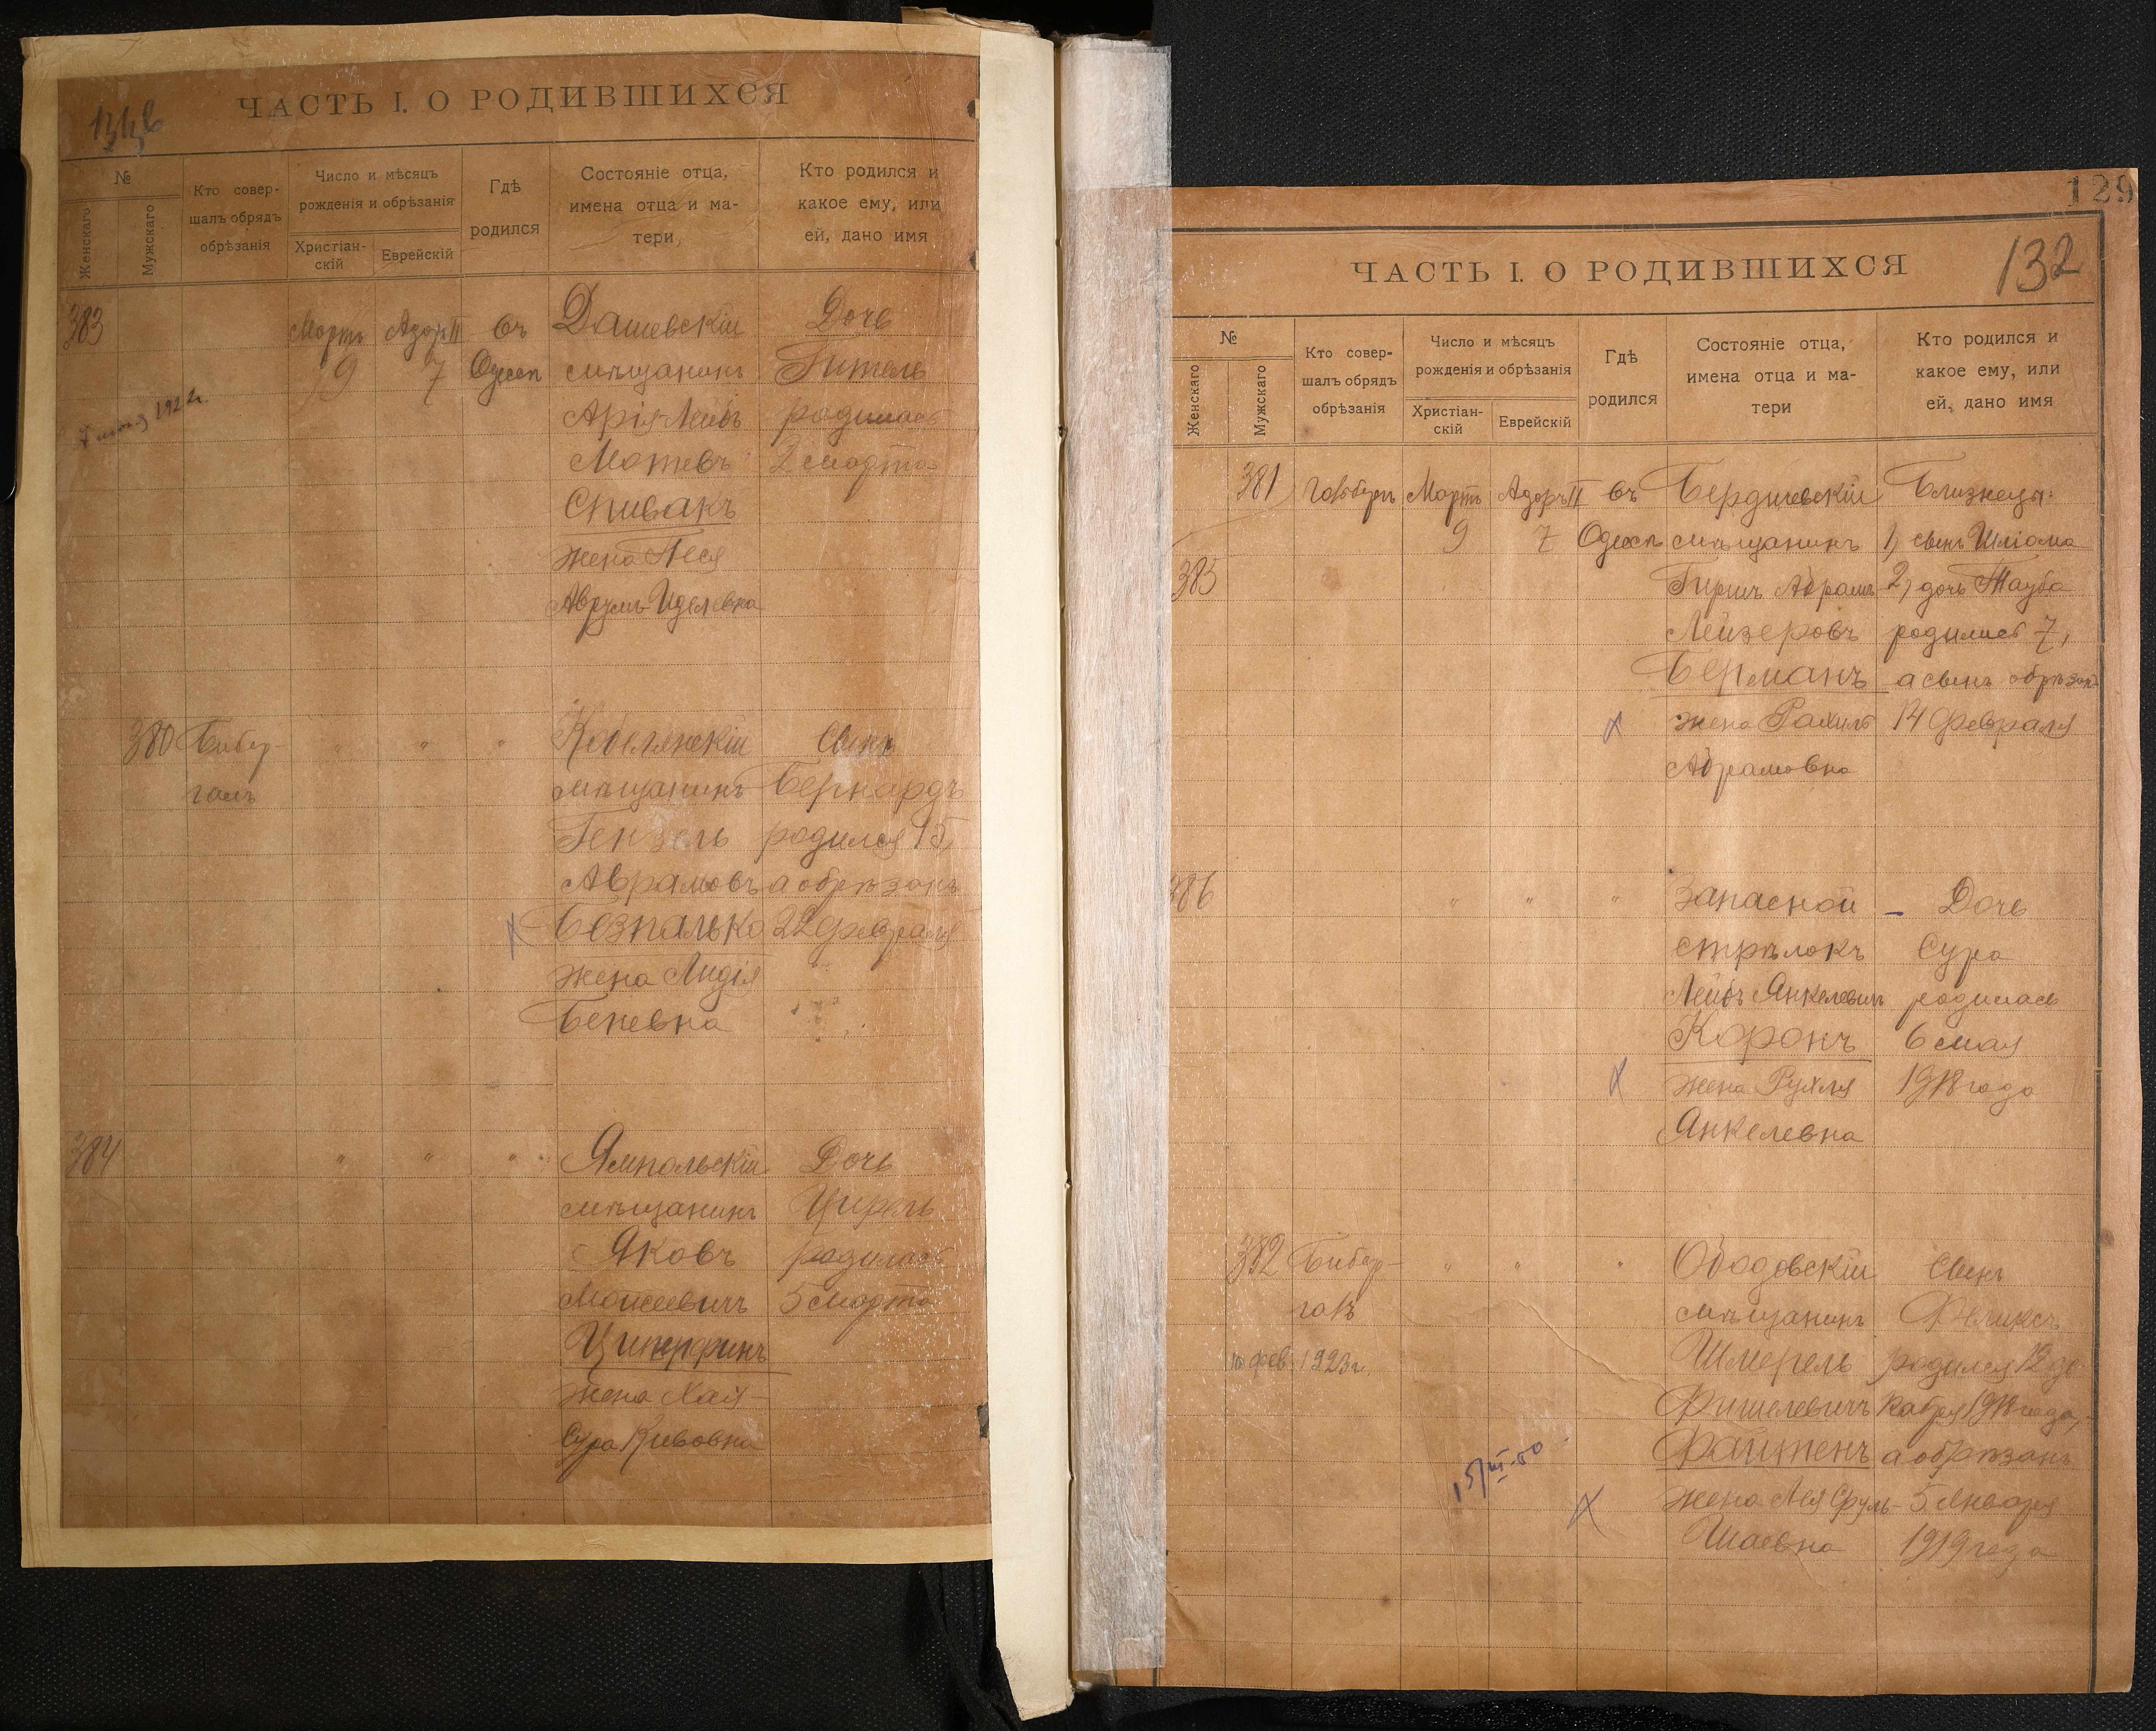 ЧАСТЬ I. О РОДИВШИХСЯ
№
Женскаго
Мужскаго
Кто совер-
шалъ обрядъ
обрѣзанія
Число и мѣсяцъ
рожденія и обрѣзанія
Христіан-
скій
Еврейскій
Гдѣ
родился
Состояніе отца,
имена отца и ма-
тери
Кто родился и
какое ему, или
ей, дано имя
383 Мартъ Адаръ II въ Дашевскій Дочь
9 7 Одессѣ мѣщанинъ Гитель
1922г. Арія-Лейбъ родилась
Мотевъ 2 марта
Спивакъ
жена Песя
Аврумъ-Иделевна
380 Бибер- " " " Кобелякскій Сынъ
галъ мѣщанинъ Бернардъ
Гензель родился 15,
Аврамовъ а обрѣзанъ
Безпалько 22 февраля
жена Лидія
Беневна
384 " " " Ямпольскій Дочь
мѣщанинъ Цирель
Яковъ родилась
Моисеевичъ 5 марта
Циперфинъ
жена Хая-
Сура Кивовна
129
132
ЧАСТЬ I. О РОДИВШИХСЯ
№
Женскаго
Мужскаго
Кто совер-
шалъ обрядъ
обрѣзанія
Число и мѣсяцъ
рожденія и обрѣзанія
Христіан-
скій
Еврейскій
Гдѣ
родился
Состояніе отца,
имена отца и ма-
тери
Кто родился и
какое ему, или
ей, дано имя
381 Мартъ Адаръ II въ Бердичевскій Близнецы:
9 7 Одессѣ мѣщанинъ 1, сынъ Шліома
385 Гиршъ Абрамъ 2, дочь Тауба
Лейзеровъ родились 7,
Берманъ а сынъ обрѣзанъ
жена Рахиль 14 февраля
Абрамовна
386 " " " Запасной Дочь
стрѣлокъ Сура
Лейбъ Янкелевичъ родилась
Коронъ 6 мая
жена Рухля 1918 года
Янкелевна
382 Бибер- " " " Ободовскій Сынъ
галъ мѣщанинъ Феликсъ
10 фев. 1923г. Шмерель родился 12 де-
Фишелевичъ кабря 1918 года,
Файтенъ а обрѣзанъ
15/III-50 жена Лея Сруль- 5 Января
Шаевна 1919 года